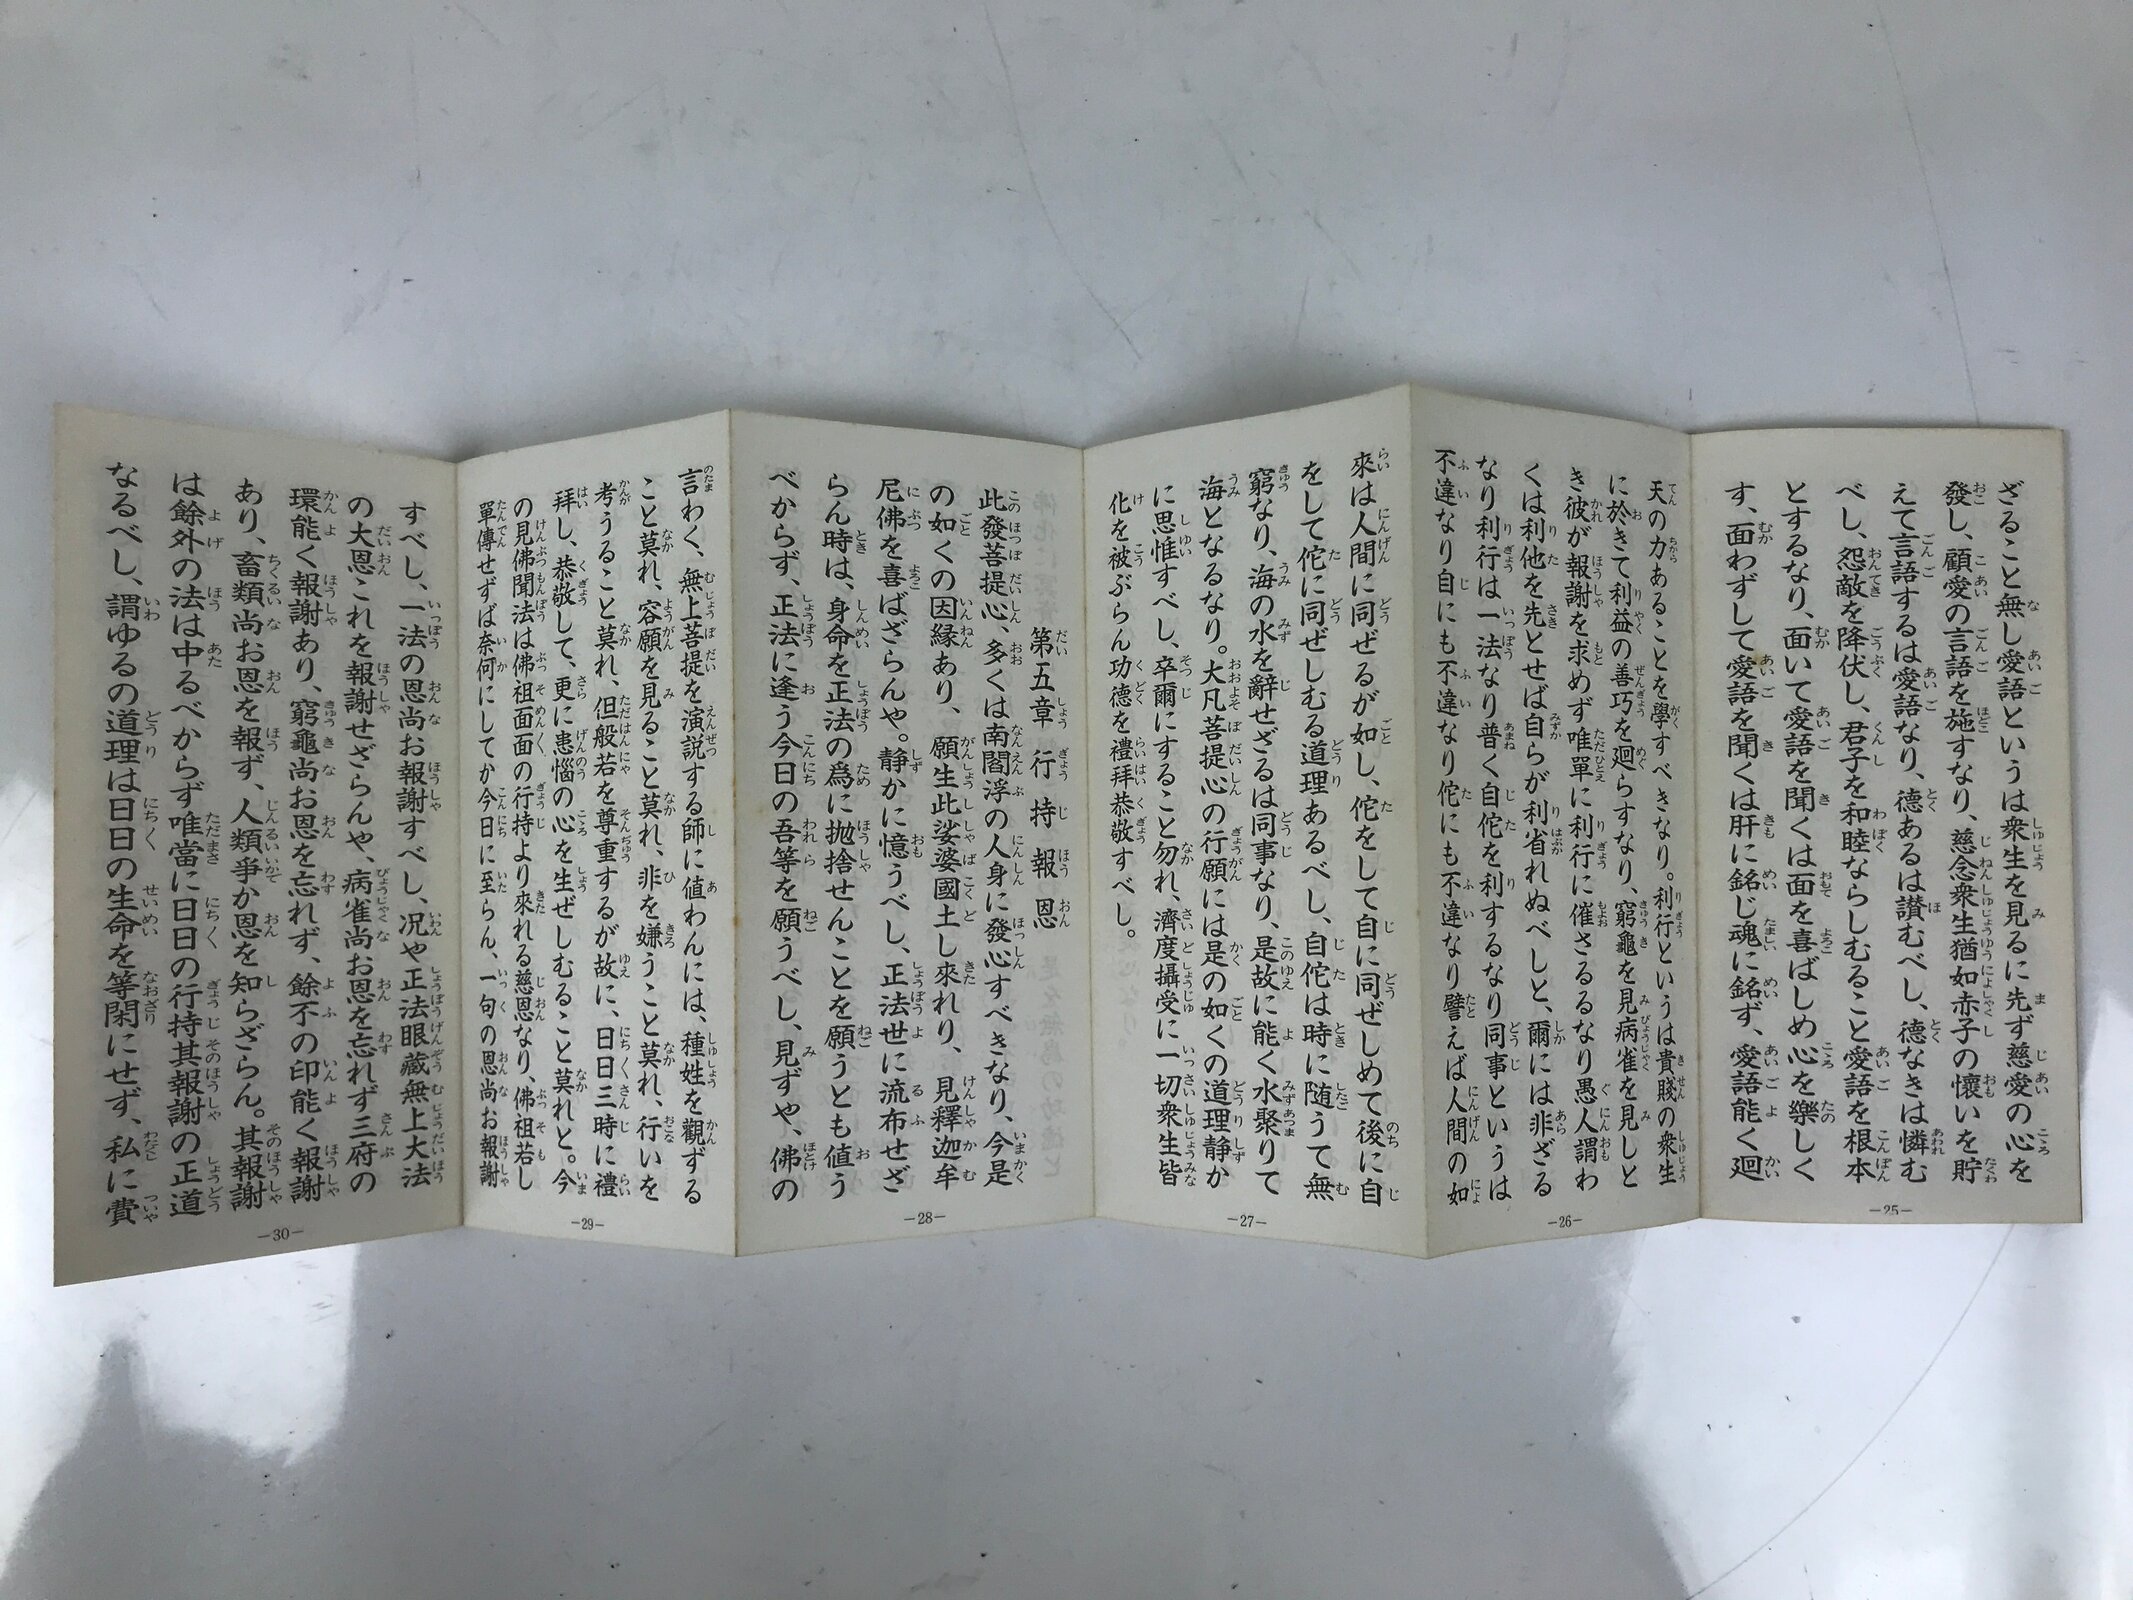 ざること無し愛語というは衆生を見るに先ず慈愛の心を
發し、顧愛の言語を施すなり、慈念衆生猶如赤子の懷いを貯
えて言語するは愛語なり、德あるは讃むべし、德なきは憐む
べし、怨敵を降伏し、君子を和睦ならしむること愛語を根本
とするなり、面いて愛語を聞くは面を喜ばしめ心を樂しく
す、面わずして愛語を聞くは肝に銘じ魂に銘ず、愛語能く廻
—25—
天の力あることを學すべきなり。利行というは貴賤の衆生
に於きて利益の善巧を廻らすなり、窮龜を見病雀を見しと
き彼が報謝を求めず唯單に利行に催さるるなり愚人謂わ
くは利他を先とせば自らが利省れぬべしと、爾には非ざる
なり利行は一法なり普く自佗を利するなり同事というは
不違なり自にも不違なり佗にも不違なり譬えば人間の如
—26—
來は人間に同ぜるが如し、佗をして自に同ぜしめて後に自
をして佗に同ぜしむる道理あるべし、自佗は時に随うて無
窮なり、海の水を辭せざるは同事なり、是故に能く水聚りて
海となるなり。大凡菩提心の行願には是の如くの道理静か
に思惟すべし、卒爾にすること勿れ、濟度攝受に一切衆生皆
化を被ぶらん功德を禮拜恭敬すべし。
—27—
第五章 行持報恩
此發菩提心、多くは南閻浮の人身に發心すべきなり、今是
の如くの因縁あり、願生此娑婆國土し來れり、見釋迦牟
尼佛を喜ばざらんや。静かに憶うべし、正法世に流布せざ
らん時は、身命を正法の爲に抛捨せんことを願うとも値う
べからず、正法に逢う今日の吾等を願うべし、見ずや、佛の
—28—
言わく、無上菩提を演説する師に値わんには、種姓を觀ずる
こと莫れ、容顔を見ること莫れ、非を嫌うこと莫れ、行いを
考うること莫れ、但般若を尊重するが故に、日日三時に禮
拜し、恭敬して、更に患惱の心を生ぜしむること莫れと。今
の見佛聞法は佛祖面面の行持より來れる慈恩なり、佛祖若し
單傳せずば奈何にしてか今日に至らん、一句の恩尚お報謝
—29—
すべし、一法の恩尚お報謝すべし、况や正法眼藏無上大法
の大恩これを報謝せざらんや、病雀尚お恩を忘れず三府の
環能く報謝あり、窮龜尚お恩を忘れず、餘不の印能く報謝
あり、畜類尚お恩を報ず、人類爭か恩を知らざらん。其報謝
は餘外の法は中るべからず唯當に日日の行持其報謝の正道
なるべし、謂ゆるの道理は日日の生命を等閑にせず、私に費
—30—